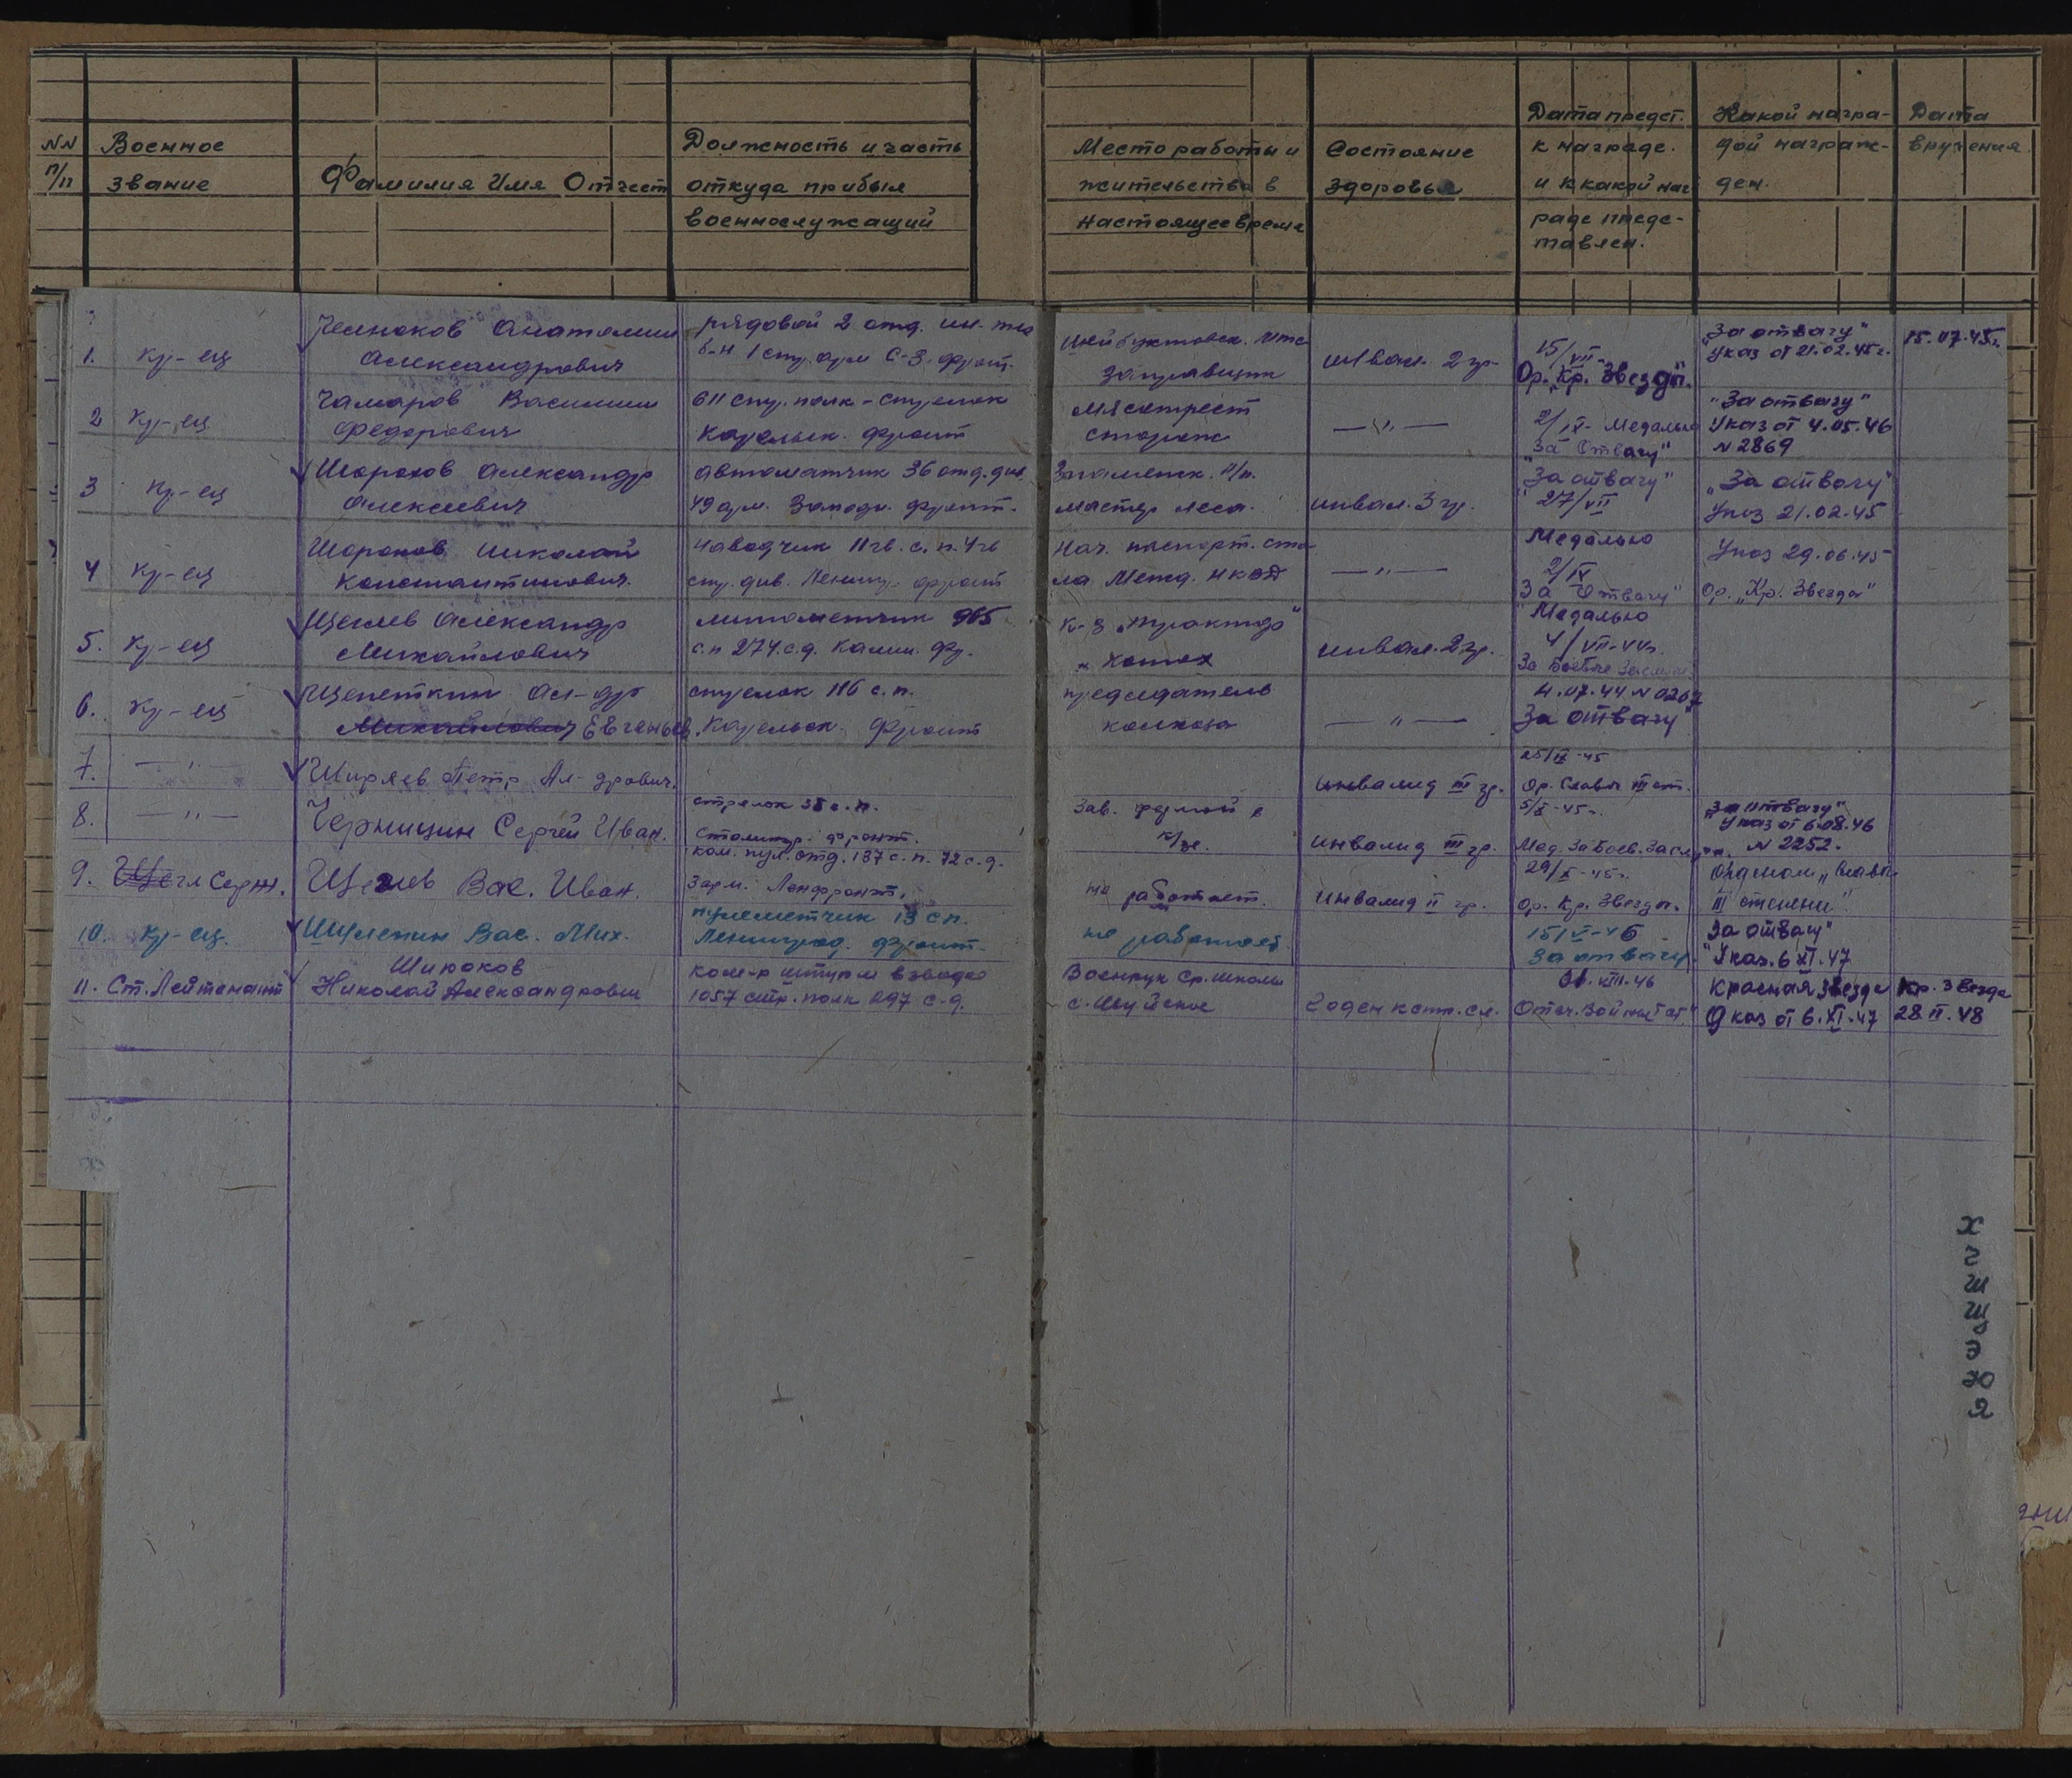 NN п/п
Военное звание
Фамилия Имя Отчест
Должность и часть откуда прибыл военнослужащий
Место работы и жительства в настоящее время
Состояние здоровья
Дата предст. к награде. и к какой наг раде предс- тавлен.
Какой награ- дой награж- ден.
Дата вручения
1. кр-ец Челноков Анатолий рядовой 2 отд.
Александрович б-н 1 С-З. фронт.
заправщик инвал. 2 гр. 15/VII Ор. "Кр. Звезды".
"За отвагу" Указ от 21.02.45г. 15.07.45г.
2 кр-ец Чамаров Василий 611 стр. полк - стрелок
Федорович Карельск. фронт
Мясотрест сторож — " — 2/IX - Медалью "За Отвагу"
"За отвагу" Указ от 4.05.46 N 2869
3 кр-ец Шорохов Александр автоматчик 36 отд.
Алексеевич 49 арм. Западн. фронт.
мастер леса. инвал. 3 гр. "За отвагу" 27/VII
"За отвагу" Указ 21.02.45
4 кр-ец Шорохов Николай наводчик 11 гв. с.п. 4 гв
Константинович. стр. див. Ленингр. фронт
Нач. паспорт. сто ла — " — Медалью 2/IX За Отвагу"
Указ 29.06.45 Ор. "Кр. Звезда"
5. кр-ец Щеглев Александр минометчик 965
Михайлович с.п 274 с.д. Калин. фр.
к-з инвал. 2 гр. "Медалью 4/VII-44г. За боевые
6. кр-ец Щепеткин Ал-др стрелок 116 с.п.
Михайлович Евгеньев. Карельск. фронт
председатель колхоза — " — 4.07.44 N За отвагу"
7. — " — Ширяев Петр Ал-дрович.
инвалид III гр. 25/IX-45 Ор. Славы III ст.
8. — " — Черницин Сергей Иван. стрелок с.п.
фронт.
Зав. фермой в к/зе. инвалид III гр. 5/X-45г. Мед. За Боев. Заслуги.
"За отвагу" Указ от 6.08.46 N 2252.
9. Серж. Щеглев Вас. Иван. ком. пул. отд. 187 с.п. 72 с.д.
Ленфронт.
не работает. инвалид II гр. 29/X-45г. Ор. Кр. Звезды.
Орденом "Славы III степени"
10. кр-ец. Вас. Мих. пулеметчик 13 сп.
Ленинград. фронт.
не работает 15/V-46 За отвагу.
За отвагу" Указ. 6 XI.47
11. Ст. Лейтенант Шиюков Николай Александрович ком-р взвода
1057 стр. полк 297 с-д.
Военрук Ср. школы с. Годен к стр. сл. VIII.46
Красная звезда Указ от 6.XI.47 Кр. Звезда 28.II.48
Х
Ч
Ш
Щ
Э
Ю
Я